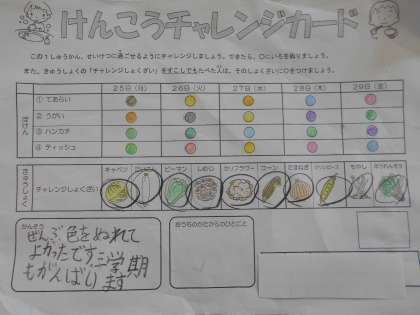 けんこうチャレンジカード
この1しゅうかん、せいけつに過ごせるようにチャレンジしましょう。できたら、○にいろを
また、きゅうしょくの「チャレンジしょくざい」をすこしでもたべた人は、そのしょくざいに○をつけましょう。
25日(月) 26日(火) 27日(水) 28日(木) 29日(金)
ほけん
① てあらい
② うがい
③ ハンカチ
④ ティッシュ
きゅうしょく
チャレンジしょくざい
キャベツ ピーマン しめじ カリフラワー コーン たまねぎ もやし
かんそう
ぜんぶ色をぬれて
よかったです。三学期
もがんばります
おうちのかたからのひとこと